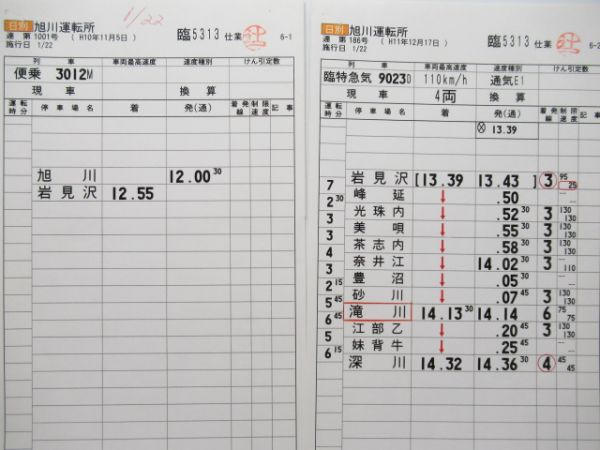 日別 旭川運転所
1/22
運 第 1001号 (H10年11月5日)
施行日 1/22
臨5313 仕業
6-1
列 車 車両最高速度 速度種別 けん引定数
便乗 3012M
現 車 換 算
運転時分 停車場名 着 発(通) 着発線 制限速度 記事
旭 川 12.00 30
岩見沢 12.55
日別 旭川運転所
運 第 186号 (H11年12月17日)
施行日 1/22
臨5313 仕業
列 車 車両最高速度 速度種別 けん引定数
臨特急気 9023D 110km/h 通気E1
現 車 4両 換 算
運転時分 停車場名 着 発(通) 着発線 制限速度 記事
⊗ 13.39
7 岩見沢 [13.39 13.43 ] ③ 95 25
2 30 峰 延 ↓ .50
3 光珠内 ↓ .52 30 3 130 130
3 美 唄 ↓ .55 30 3 130 130
4 茶志内 ↓ .58 30 3 130 130
3 奈井江 ↓ 14.02 30 3 110
2 15 豊 沼 ↓ .05 30
5 45 砂 川 ↓ .07 45 3 130 130
6 45 滝 川 14.13 30 14.14 6 75 75
5 江部乙 ↓ .20 45 3 130 130
6 15 妹背牛 ↓ .25 45
深 川 14.32 14.36 30 ④ 45 45